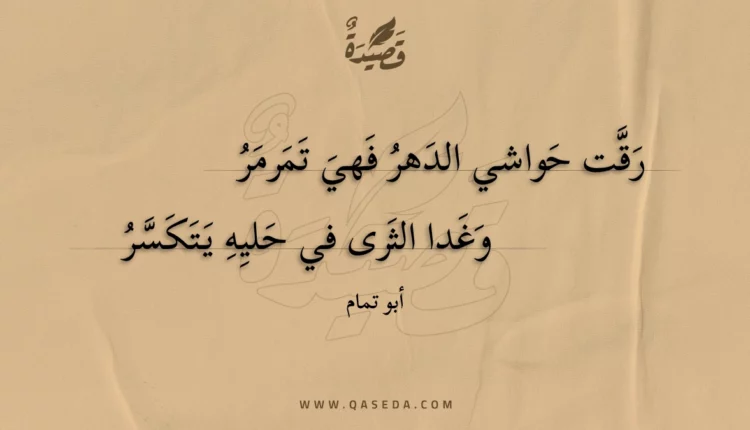 قَصِيدَةٌ
رَقَّت حَواشي الدَهرُ فَهيَ تَمَرمَرُ
وَغَدا الثَرى في حَليِهِ يَتَكَسَّرُ
أبو تمام
WWW.QASEDA.COM